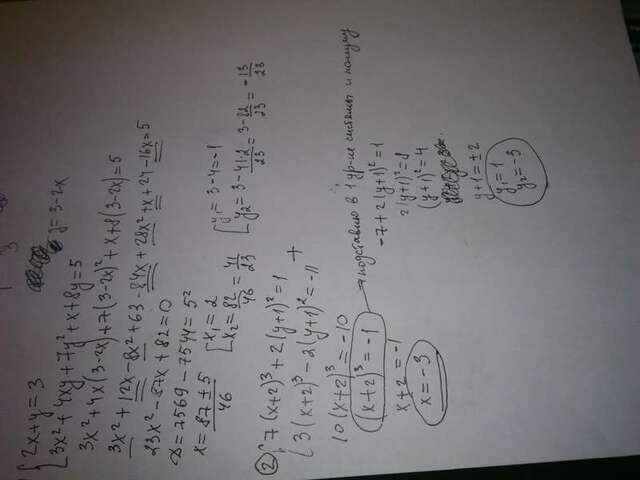 { 2x+y=3
y=3-2x
{ 3x²+4xy+7y²+x+8y=5
3x²+4x(3-2x)+7(3-2x)²+x+8(3-2x)=5
3x²+12x-8x²+63-84x+28x²+x+24-16x=5
23x²-87x+82=0
D=7569-7544=5²
x=(87±5)/46
[ x₁=2
x₂=82/46=41/23
[ y₁=3-4=-1
y₂=3-41·2/23=3-82/23=-13/23
② { 7(x+2)³+2(y+1)²=1
{ 3(x+2)³-2(y+1)²=-11 +
10(x+2)³=-10
(x+2)³=-1 → подставлю в 1 ур-ие системы и получу
x+2=-1
x=-3
-7+2(y+1)²=1
2(y+1)²=8
(y+1)²=4
y+1=±2
y₁=1
y₂=-3